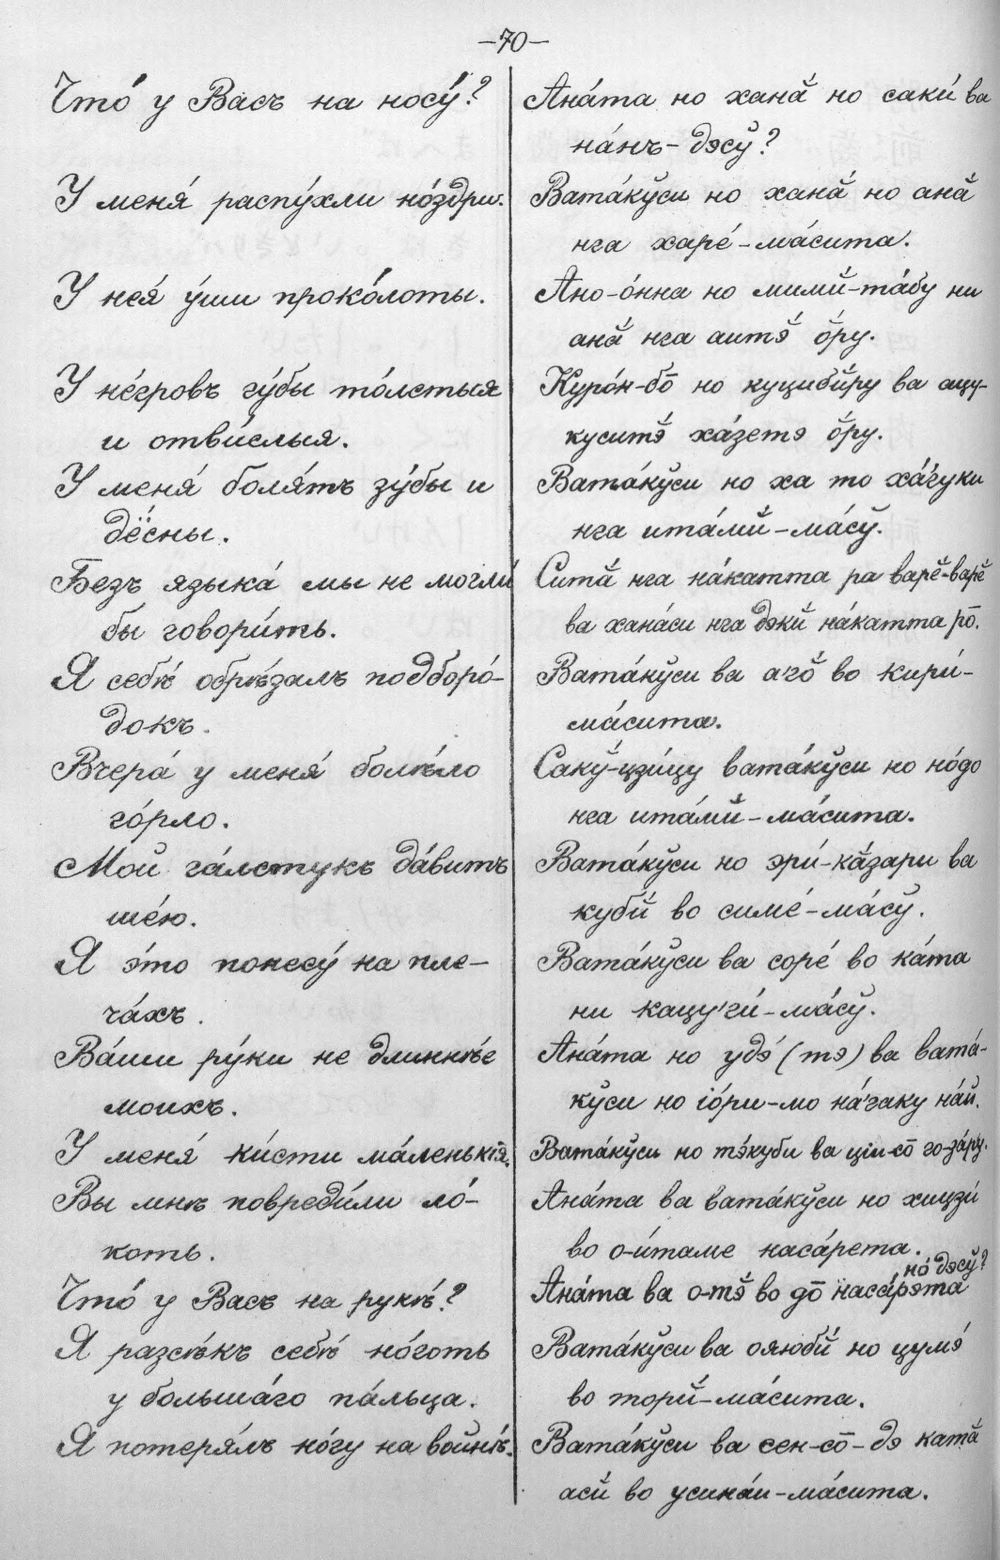 —70—
Что́ у Васъ на носу́?
У меня́ распу́хли но́здри.
У нея́ у́ши проко́лоты.
У не́гровъ гу́бы то́лстыя
и отви́слыя.
У меня́ боля́тъ зу́бы и
дёсны.
Безъ языка́ мы не могли́
бы говори́ть.
Я себѣ обрѣ́залъ подборо́-
докъ.
Вчера́ у меня́ болѣ́ло
го́рло.
Мой га́лстукъ да́витъ
ше́ю.
Я э́то понесу́ на пле-
ча́хъ.
Ва́ши ру́ки не длиннѣе
моихъ.
У меня́ ки́сти ма́ленькія.
Вы мнѣ повреди́ли ло́-
коть.
Что́ у Васъ на рукѣ́?
Я разсѣ́къ себѣ́ но́готь
у большáго па́льца.
Я потеря́лъ но́гу на войнѣ́.
Ана́та но ханӑ́ но саки́ ва
на́нъ-дэсў?
Вата́кўси но ханӑ́ но анӑ́
нга харе́-ма́сита.
Ано-о́нна но мимй-та́бу ни
анӑ́ нга аитэ̆́ о̆́ру.
Куро́н-бо̄ но куцибӣ́ру ва ацу-
куситэ̆́ ха́зетэ о̆́ру.
Вата́кўси но ха то ха́гуки
нга ита́мй-ма́сў.
Ситӑ́ нга на́катта ра варӗ́-варӗ́
ва хана́си нга дэкй на́катта ро̄.
Вата́кўси ва а'го̆́ во кири́-
ма́сита.
Сакў́-цзи́цу вата́кўси но но́до
нга ита́мй-ма́сита.
Вата́кўси но эри́-кӑ́зари ва
кубй во симе́-ма́сў.
Вата́кўси ва соре́ во ка́та
ни кацу'ги́-ма́сў.
Ана́та но удэ́ (тэ) ва вата́-
кўси но іо́ри-мо на́'гаку на́й.
Вата́кўси но тэ́куби ва ціи-со̄ го-за́ру.
Ана́та ва вата́кўси но хицзи́
во о-и́таме наса́рета.
но́ дэсў?
Ана́та ва о-тэ̆́ во до̄ наса́рэта
Вата́кўси ва ояюбй но цумэ́
во торй-ма́сита.
Вата́кўси ва сен-со̄-дэ катӑ́
асй во усина́и-ма́сита.